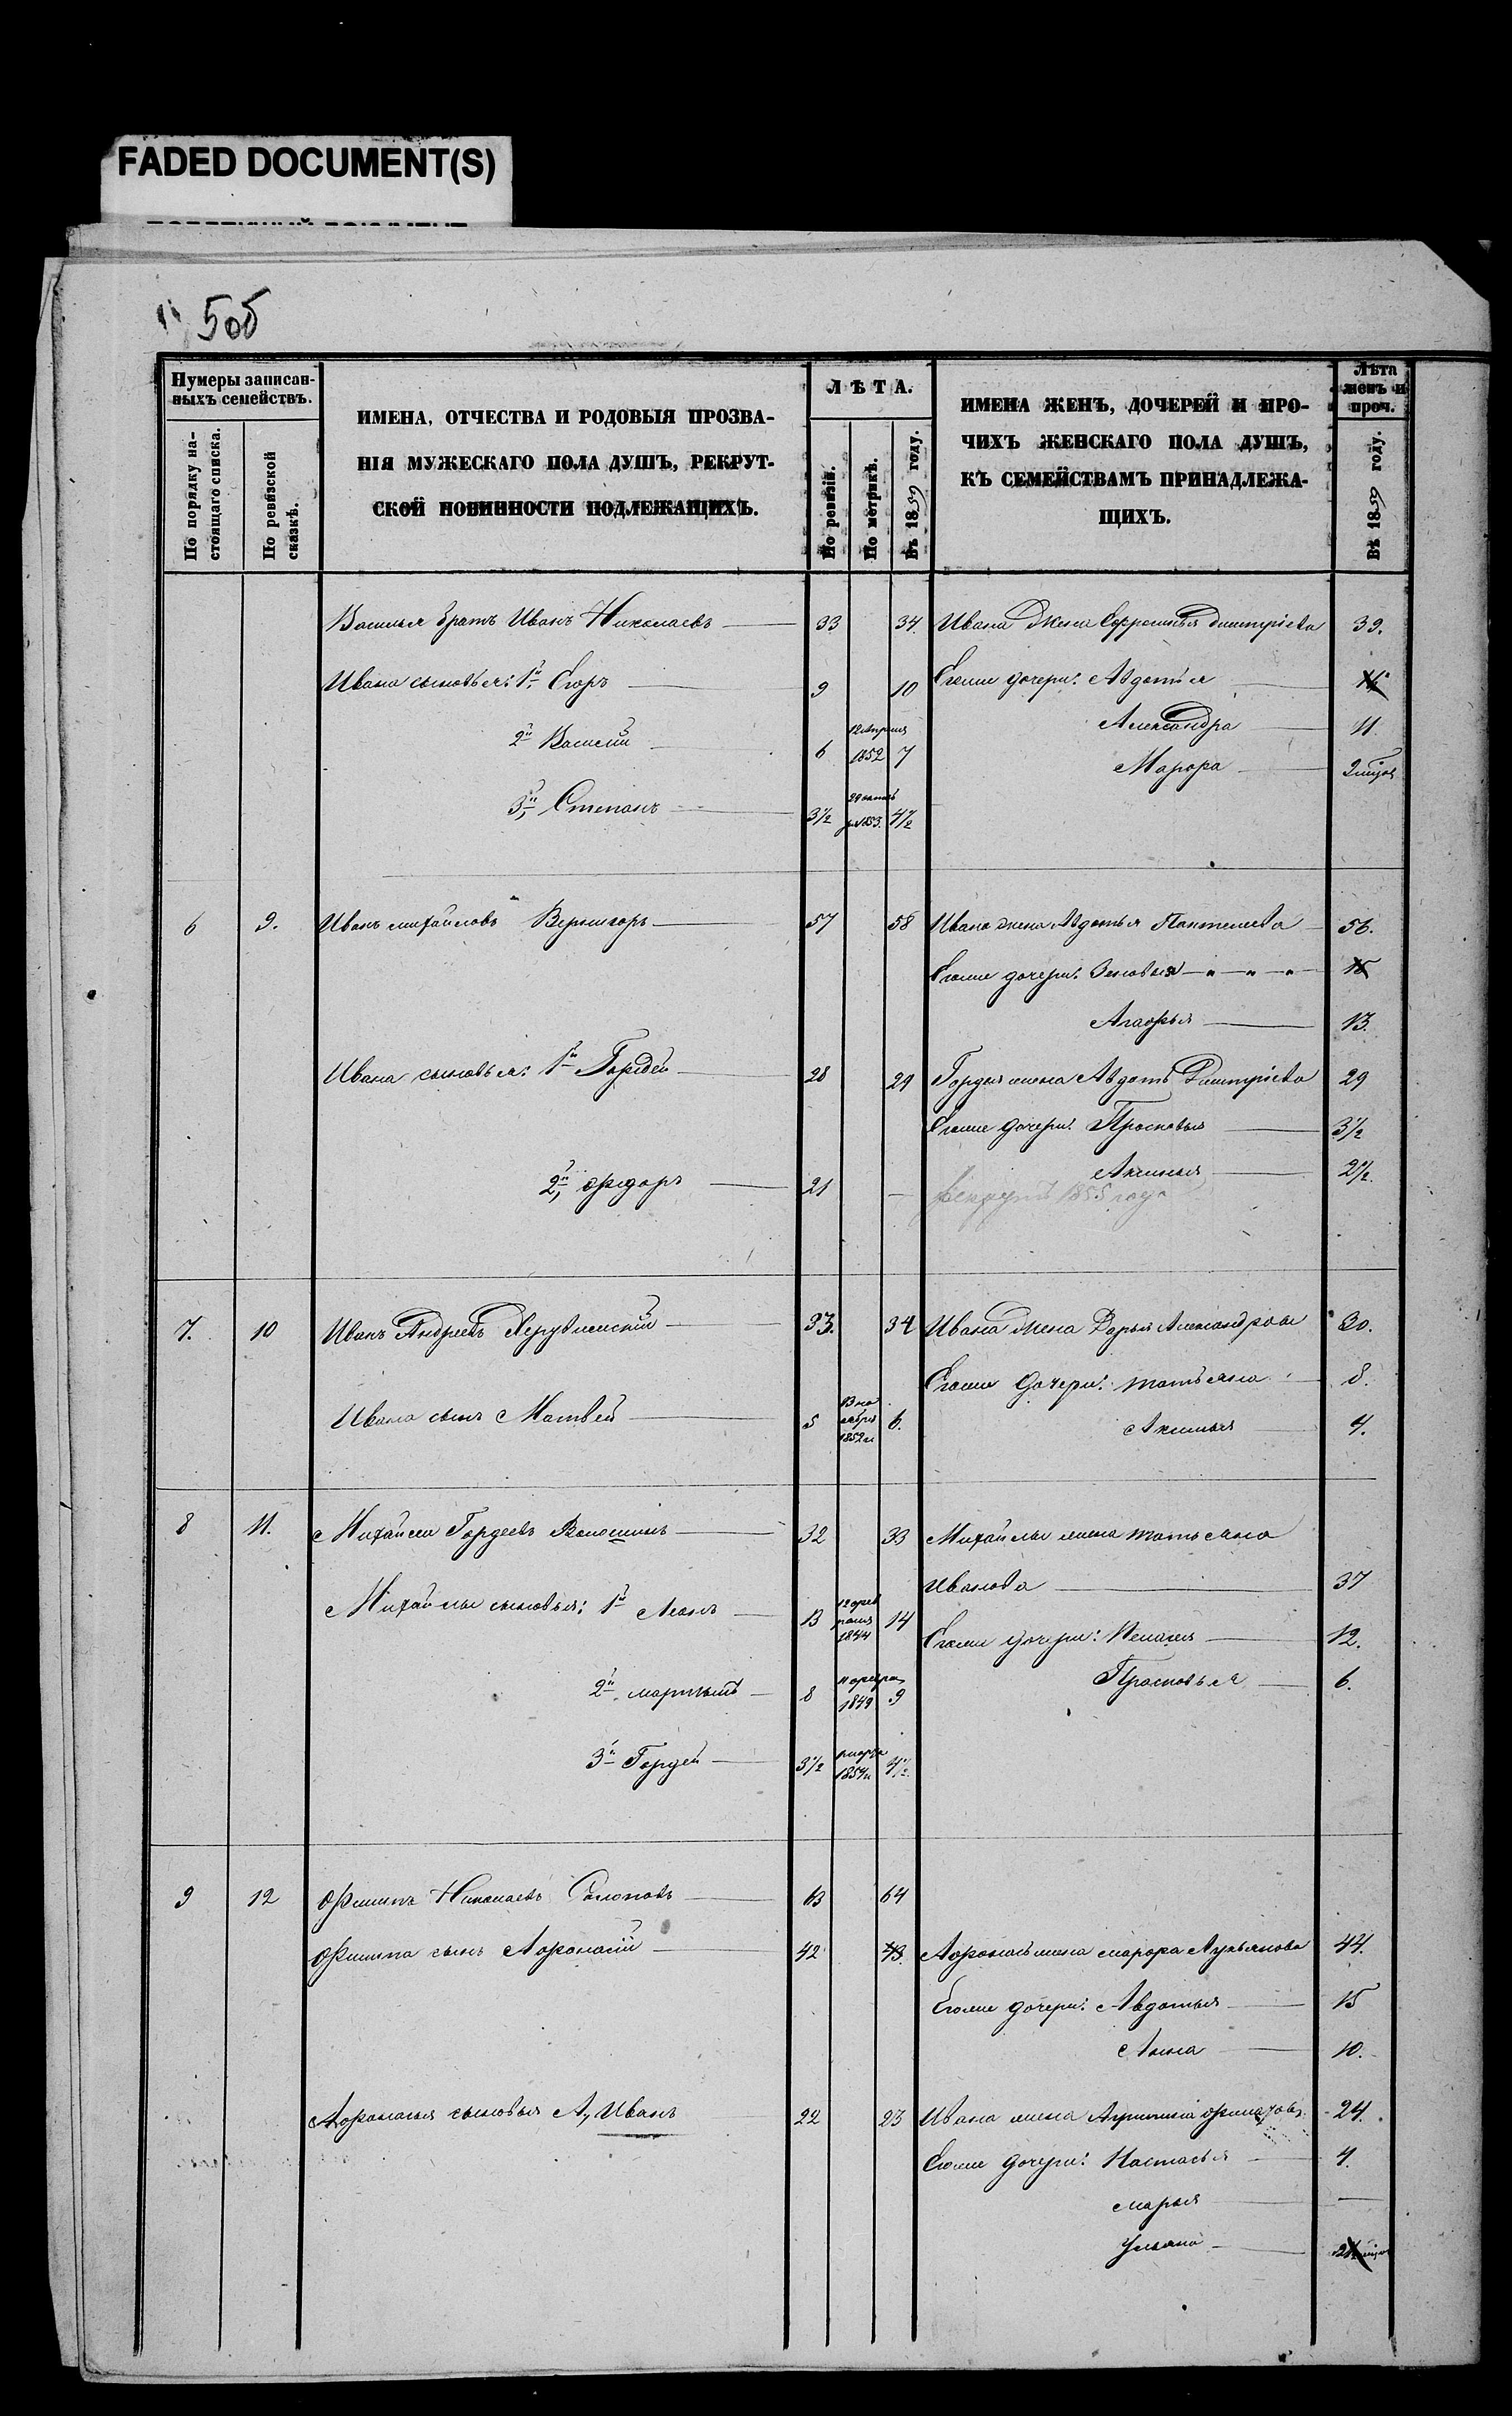 FADED DOCUMENT(S)
50б
Нумеры записан-
ныхъ семействъ.
По порядку на-
стоящаго списка.
По ревизской
сказкѣ.
ИМЕНА, ОТЧЕСТВА И РОДОВЫЯ ПРОЗВА-
НІЯ МУЖЕСКАГО ПОЛА ДУШЪ, РЕКРУТ-
СКОЙ ПОВИННОСТИ ПОДЛЕЖАЩИХЪ.
ЛѢТА.
По ревизіи.
По метрикѣ.
Въ 1859 году.
ИМЕНА ЖЕНЪ, ДОЧЕРЕЙ И ПРО-
ЧИХЪ ЖЕНСКАГО ПОЛА ДУШЪ,
КЪ СЕМЕЙСТВАМЪ ПРИНАДЛЕЖА-
ЩИХЪ.
Лѣта
женъ и
проч.
Въ 1859 году.
Василья братъ Иванъ Николаевъ 33 34. Ивана жена Евфросинья Дмитріева 39.
Ивана сыновья: 1й Егоръ 9 10 Егоже дочери: Авдотья
Александра 11.
2й Василій 6 12 Апреля 1852 7
Марфа 2 мѣсяц
3й Степанъ 3½ 29 1853. 4½
6 9. Иванъ Михайловъ 57 58 Ивана жена Авдотья Пантелеева 56.
Егоже дочери: Зиновья 18
Агафья 13.
Ивана сыновья: 1й Гордѣй 28 29 Гордѣя жена Авдотья Дмитріева 29
Егоже дочери: Просковья 3½
Аксинья 2½.
2й Федоръ 21 — рекрутъ 1855 года
7. 10 Иванъ Андреевъ 33. 34 Ивана жена Дарья Александрова 30.
Егоже дочери: Татьяна 8.
Ивана сынъ Матвей 5 13 ноября 1852 6.
Аксинья 4.
8 11. Михайла Гордеевъ Волошинъ 32 33 Михайлы жена Татьяна
Иванова 37
Михайлы сыновья: 1й 13 12 февраля 1844 14
Егоже дочери: Пелагея 12.
2й Мартынъ 8 1849 9
Просковья 6.
3й Гордей 3½ марта 1854 4½.
9 12 Филипъ Николаевъ 63 64
Филипа сынъ Афонасій 42 43. Афонасья жена Марфа Лукьянова 44.
Егоже дочери: Авдотья 15
Анна 10.
Афонасья сыновья Иванъ 22 23 Ивана жена 24.
Егоже дочери: Настасья 4.
Марья —
Ульяна